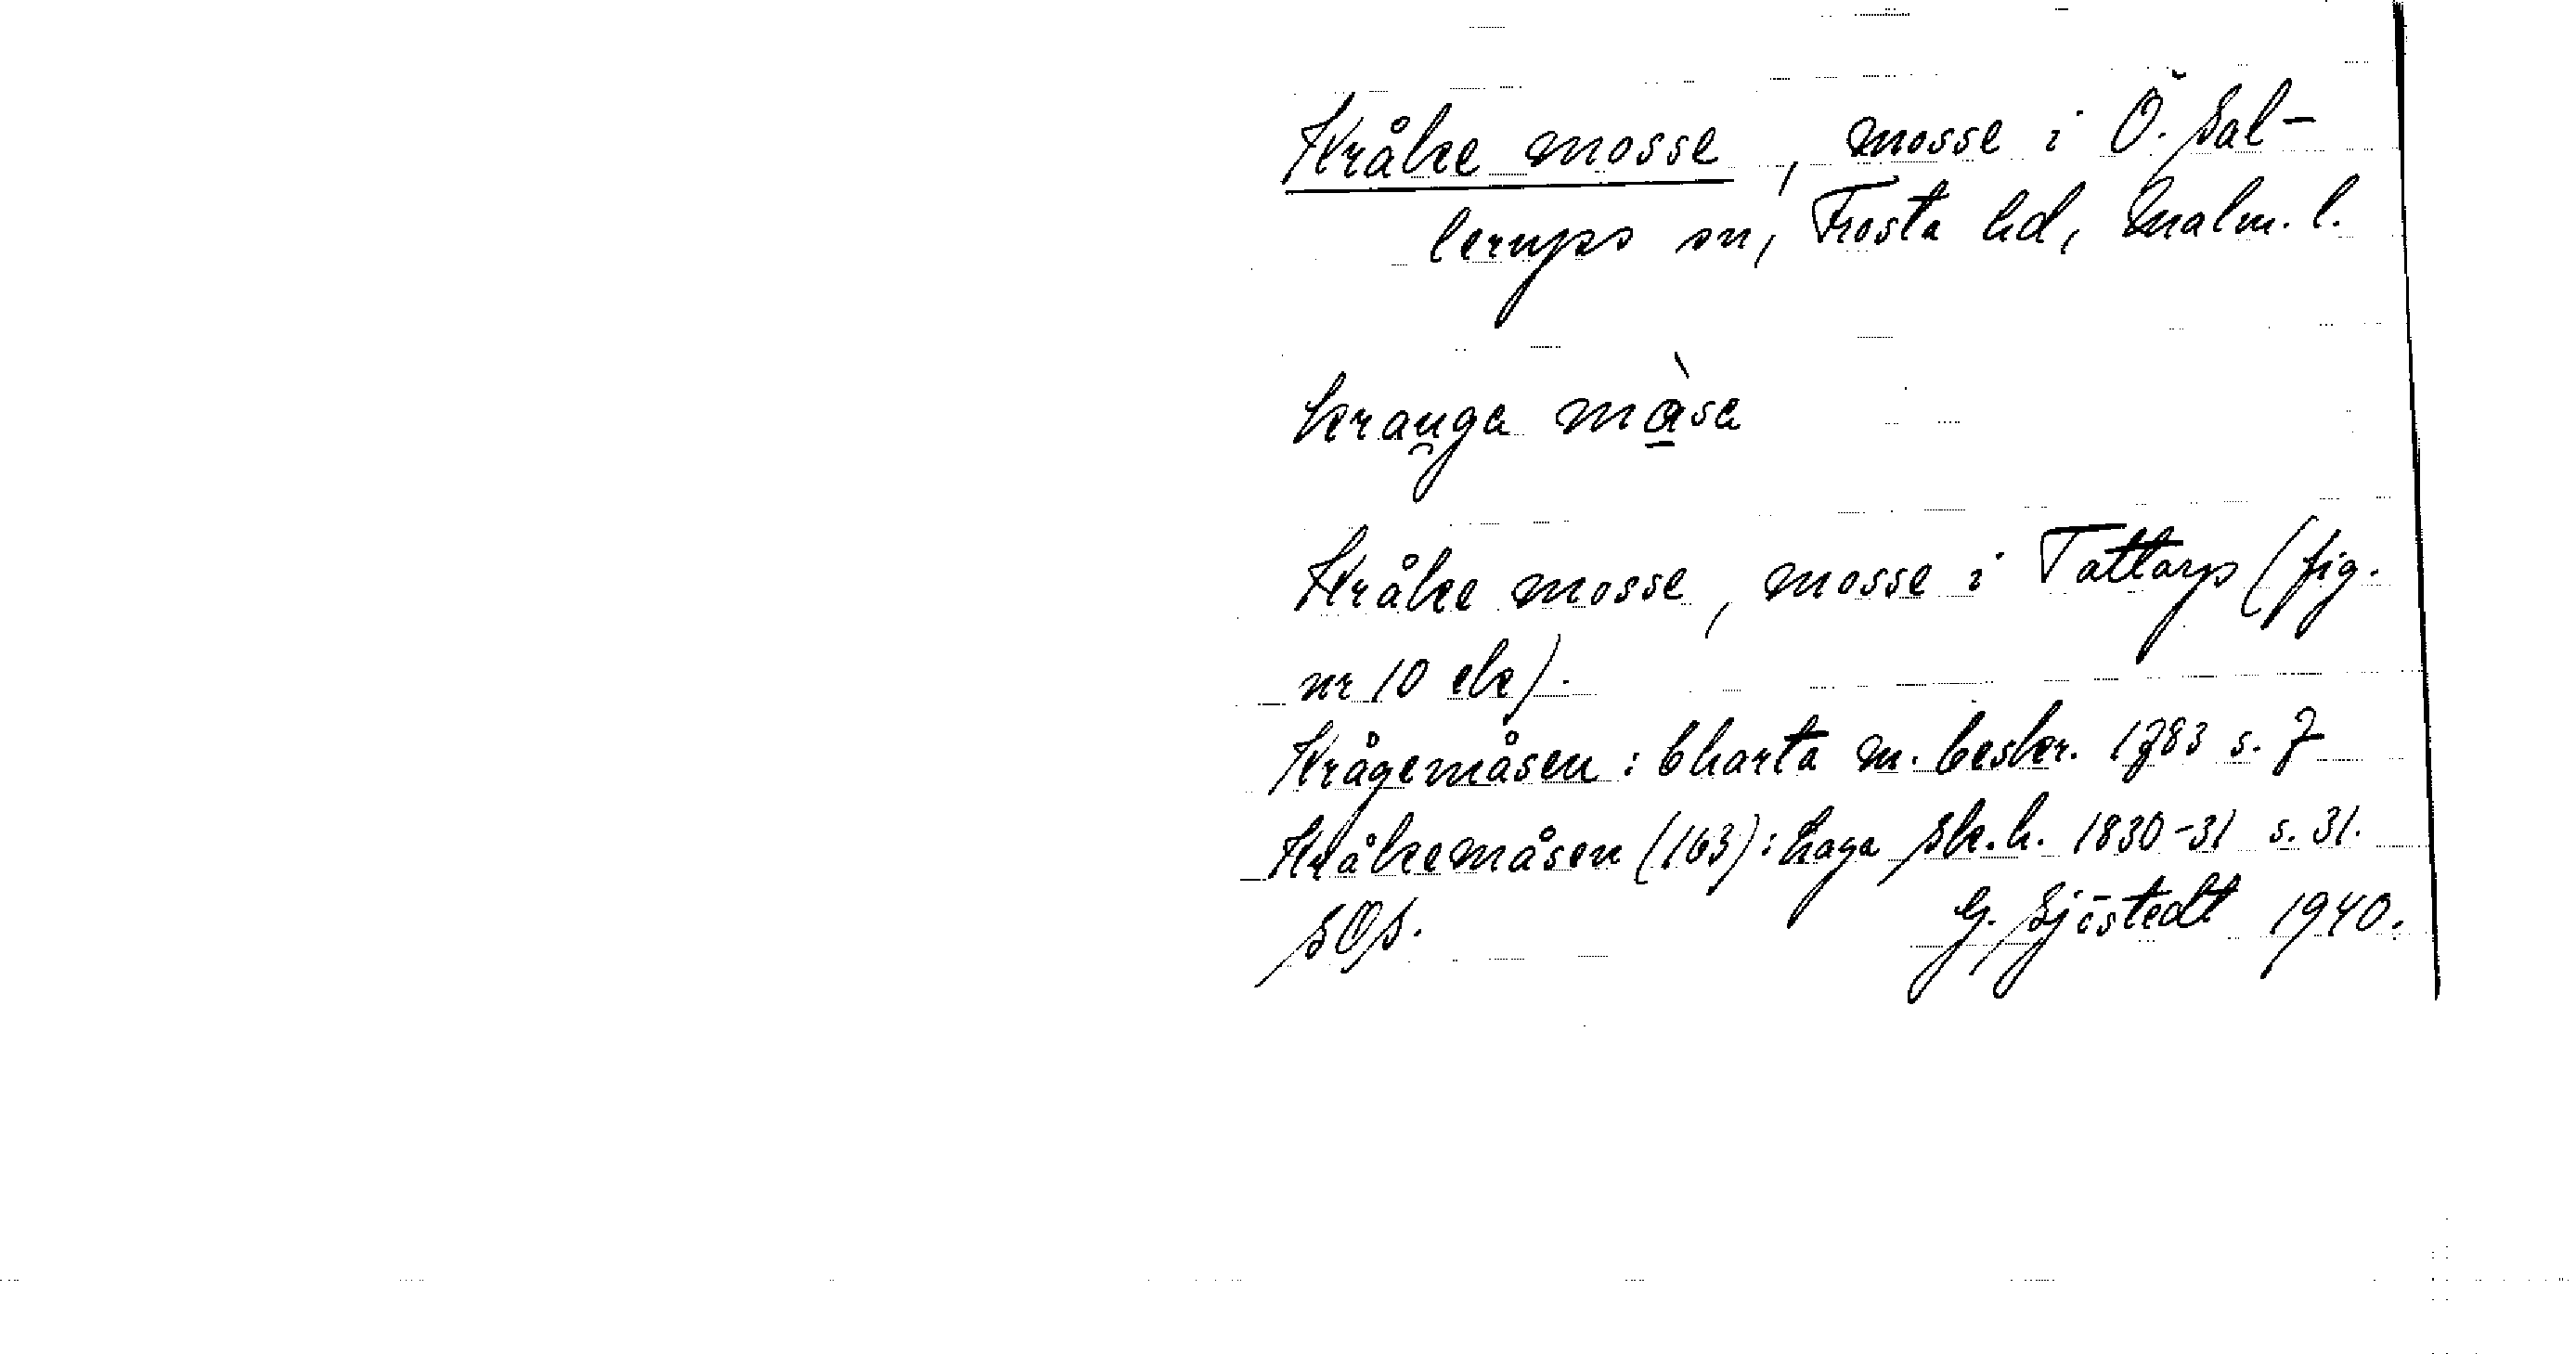 Kråke mosse, mosse i Ö. Sal-
lerups sn, Frosta hd, Malm. l.
krau̯ga màsa
Kråke mosse, mosse i Tattarp (fig.
nr 10 ek).
Krågemåsen: Charta m. beskr. 1783 s. 7
Kråkemåsen (163): Laga sk.h. 1830-31 s. 31.
SOS. G. Sjöstedt 1940.